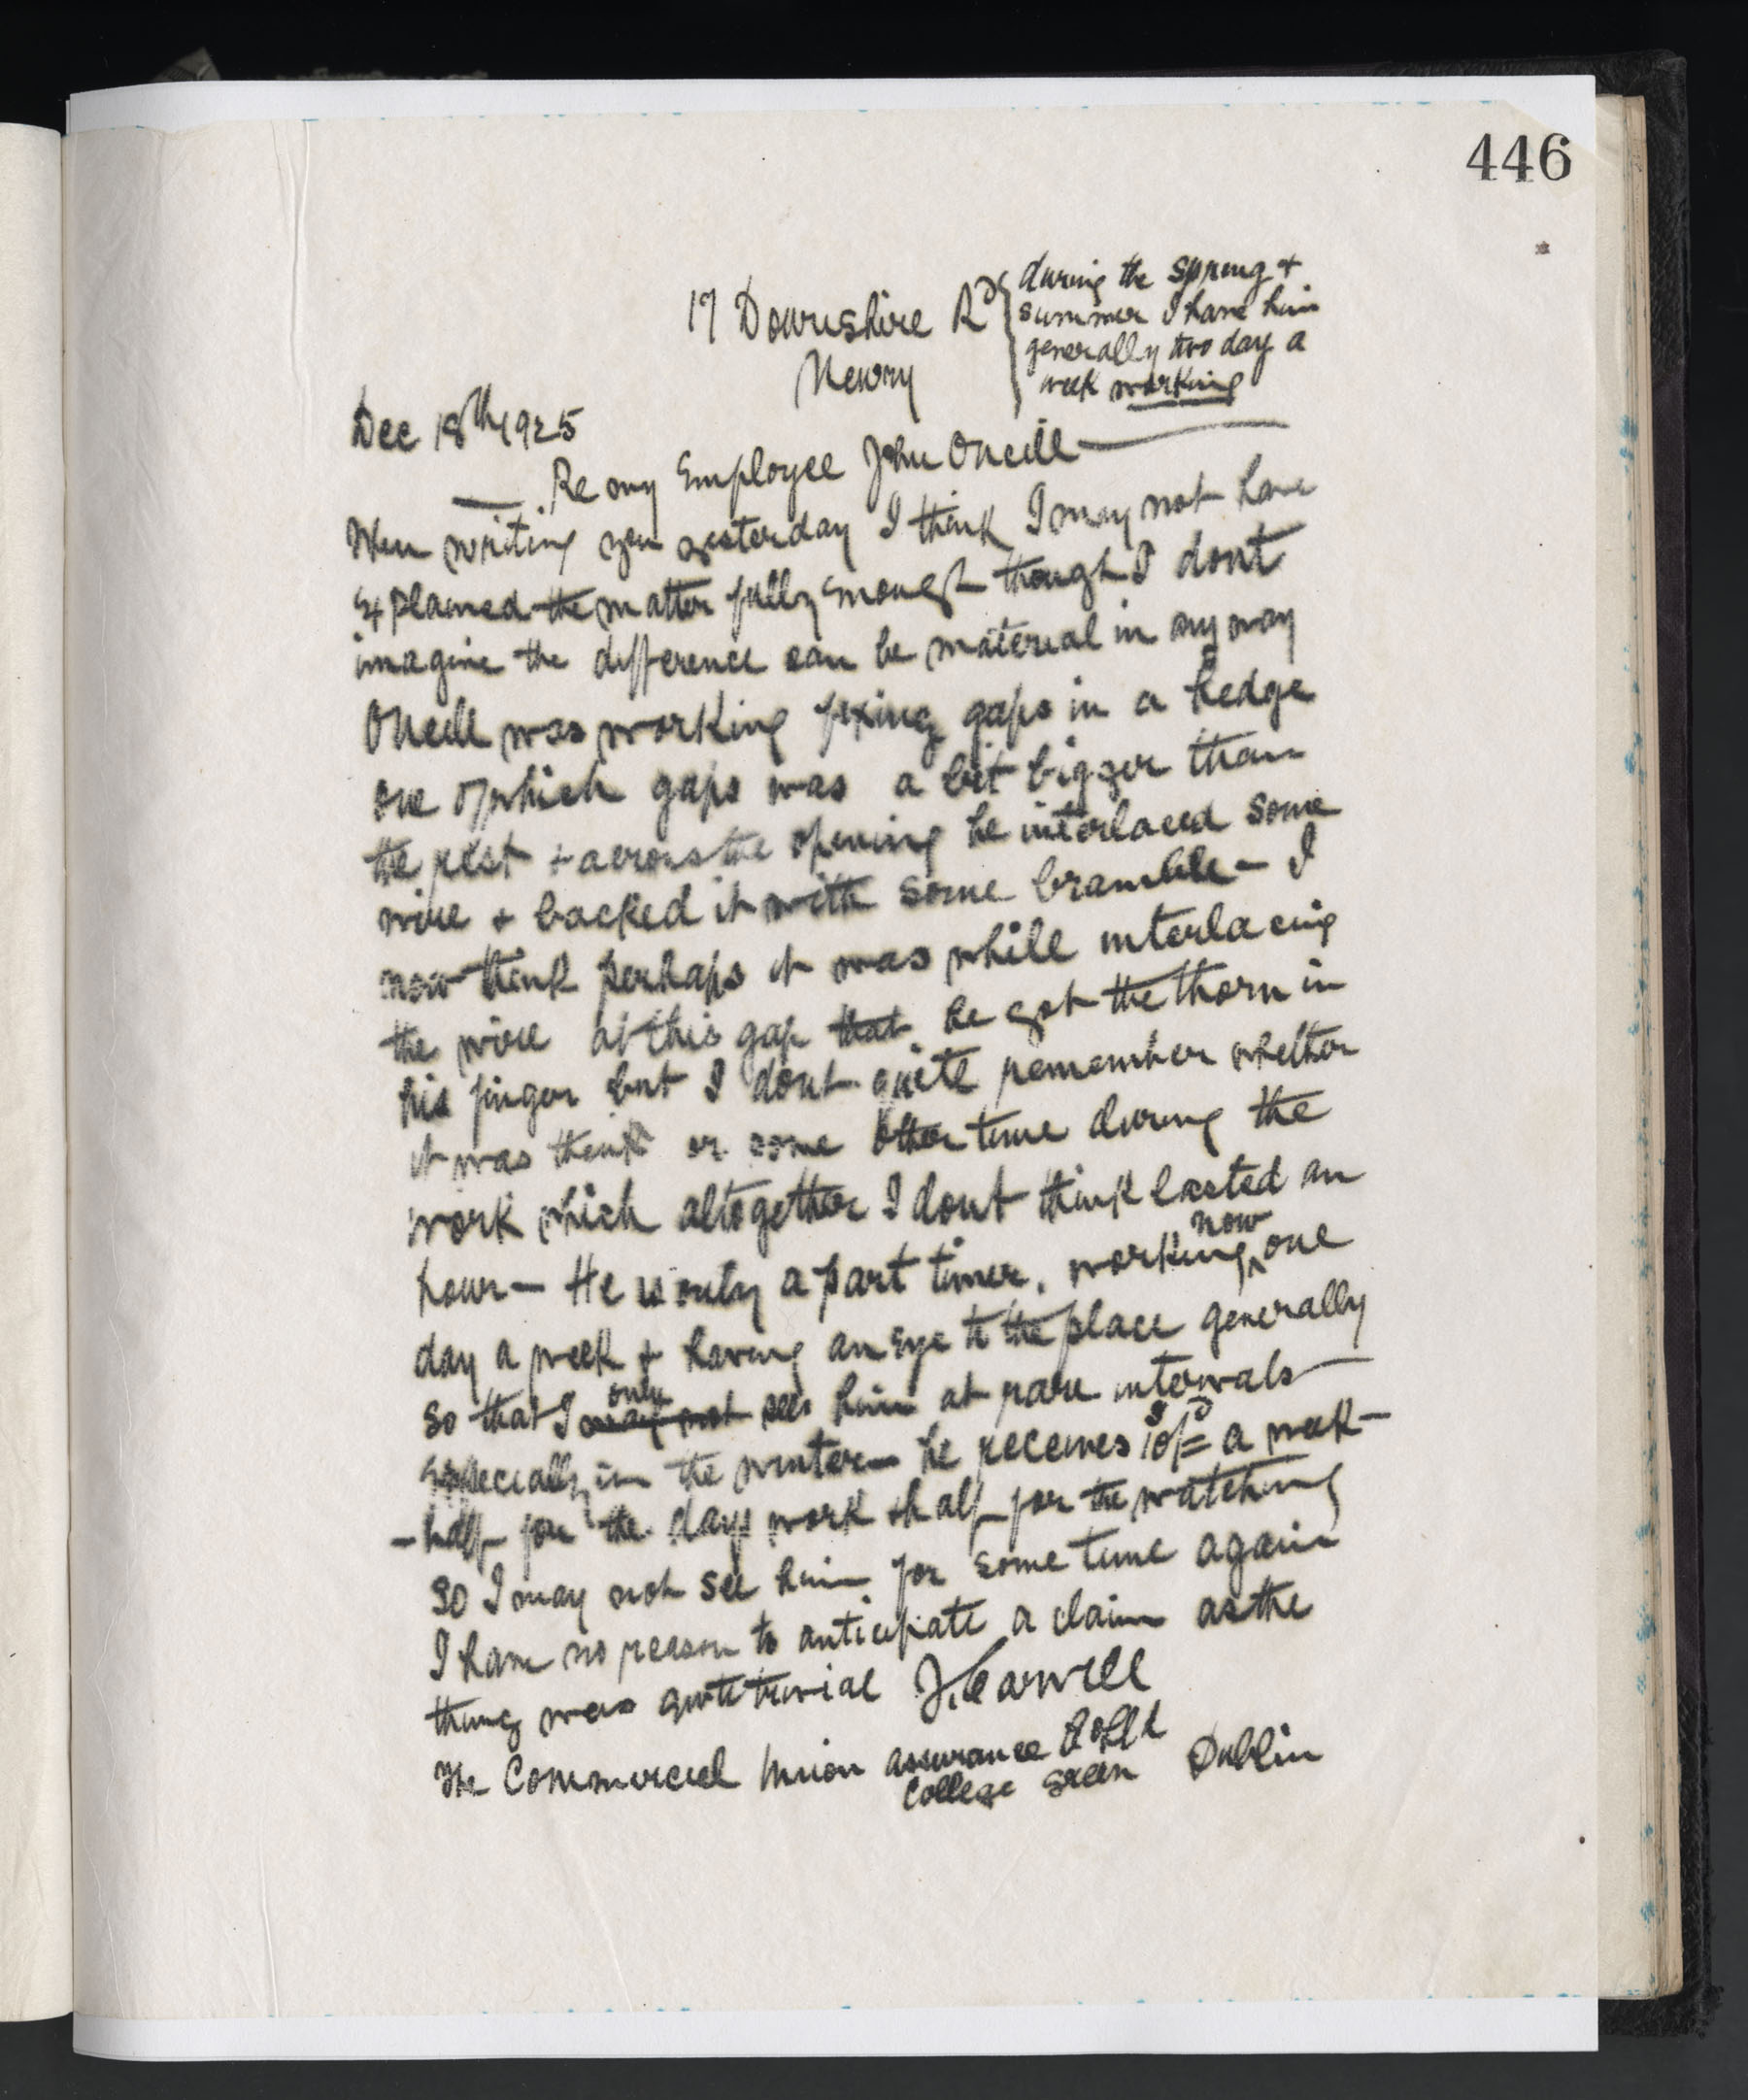 446
17 Downshire Rd
Newry
during the spring +
summer I have him
generally two day a
week working
Dec 18th 1925
Re my Employee John ONeill
When writing you yesterday I think I may not have
Explained the matter fully enough though I dont
imagine the difference can be material in any way
ONeill was working fixing gaps in a hedge
one of which gaps was a bit bigger than
the rest + across the opening he interlaced some
wire + backed it with some bramble - I
now think perhaps it was while interlacing
the wire at this gap that he got the thorn in
his finger but I dont quite remember whether
it was then or some other time during the
work which altogether I dont think lasted an
hour - He is only a part timer, working now one
day a week + having an Eye to the place generally
so that I only see him at rare intervals
Especially in the winter - he receives 10/= a week -
- half for the days work + half for the watching
So I may not see him for some time again
I have no reason to anticipate a claim as the
thing was quite trivial J. Carvill
The Commercial Union Assurance Co Ltd
College Green Dublin